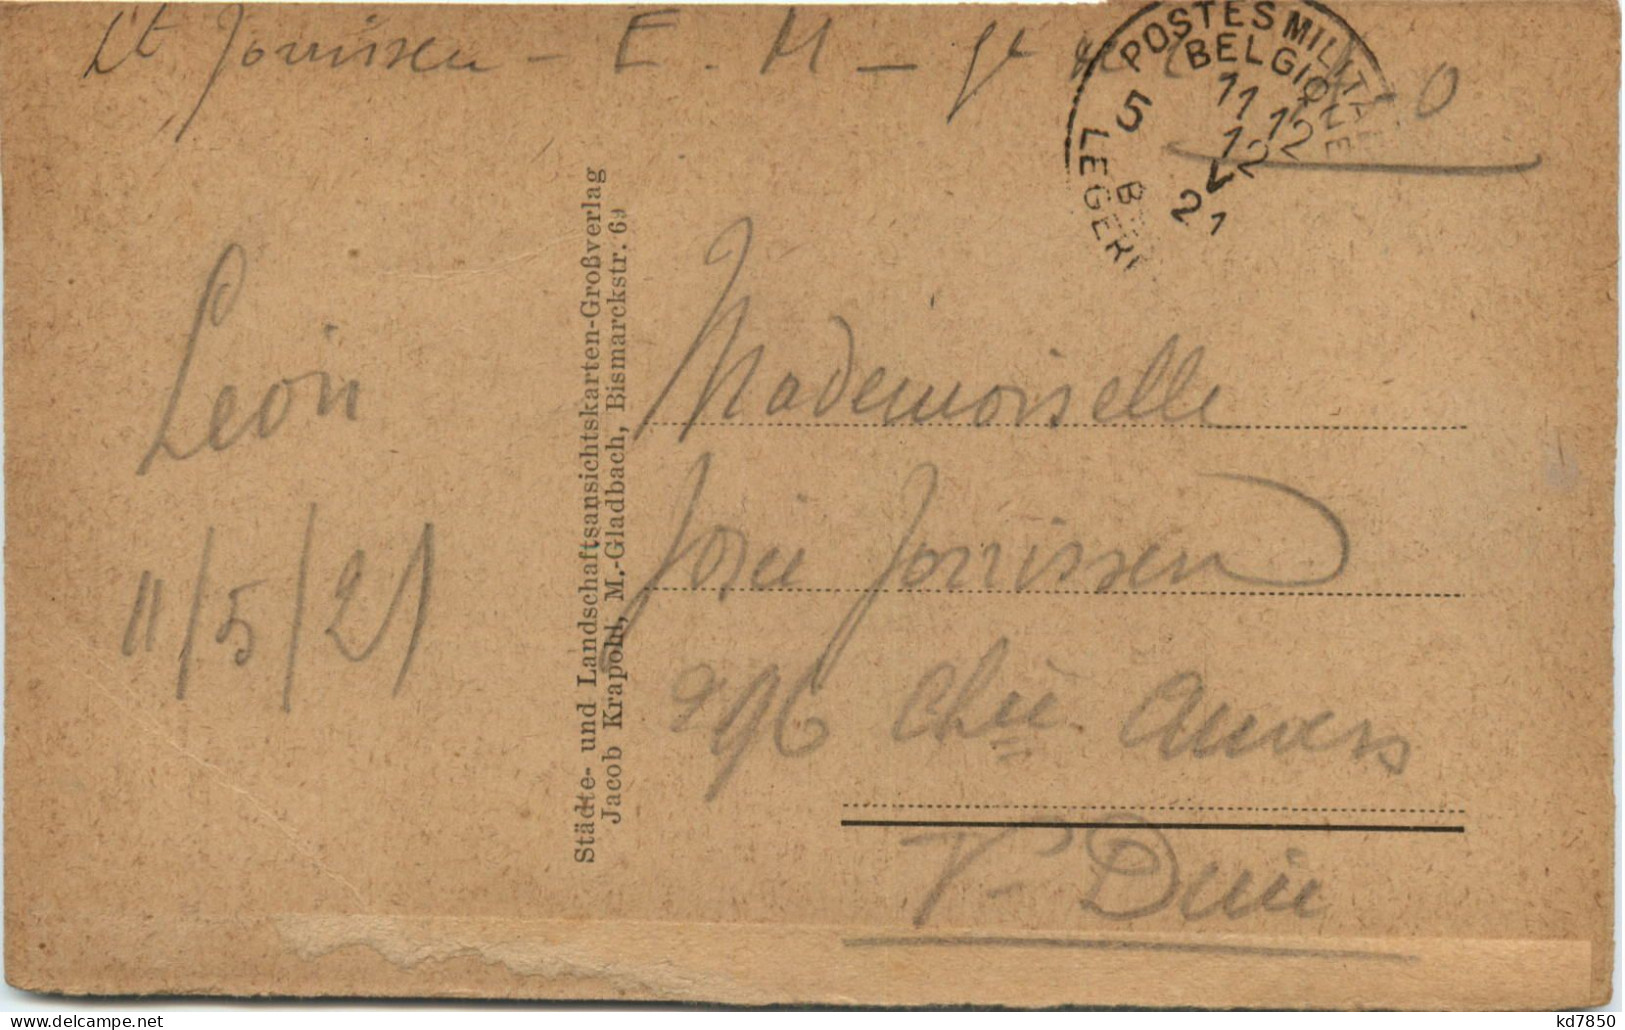 Lt Jorrissen - E. M -
POSTES MILITAI
BELGIQUE
5
11 12
12
V
21
LEGERP
Léon
11/5/21
Städte- und Landschaftsansichtskarten-Großverlag
Jacob Krapohl, M.-Gladbach, Bismarckstr. 69
Mademoiselle
José Jorrissen
296 Chée Anvers
V- Dieu
kd7850